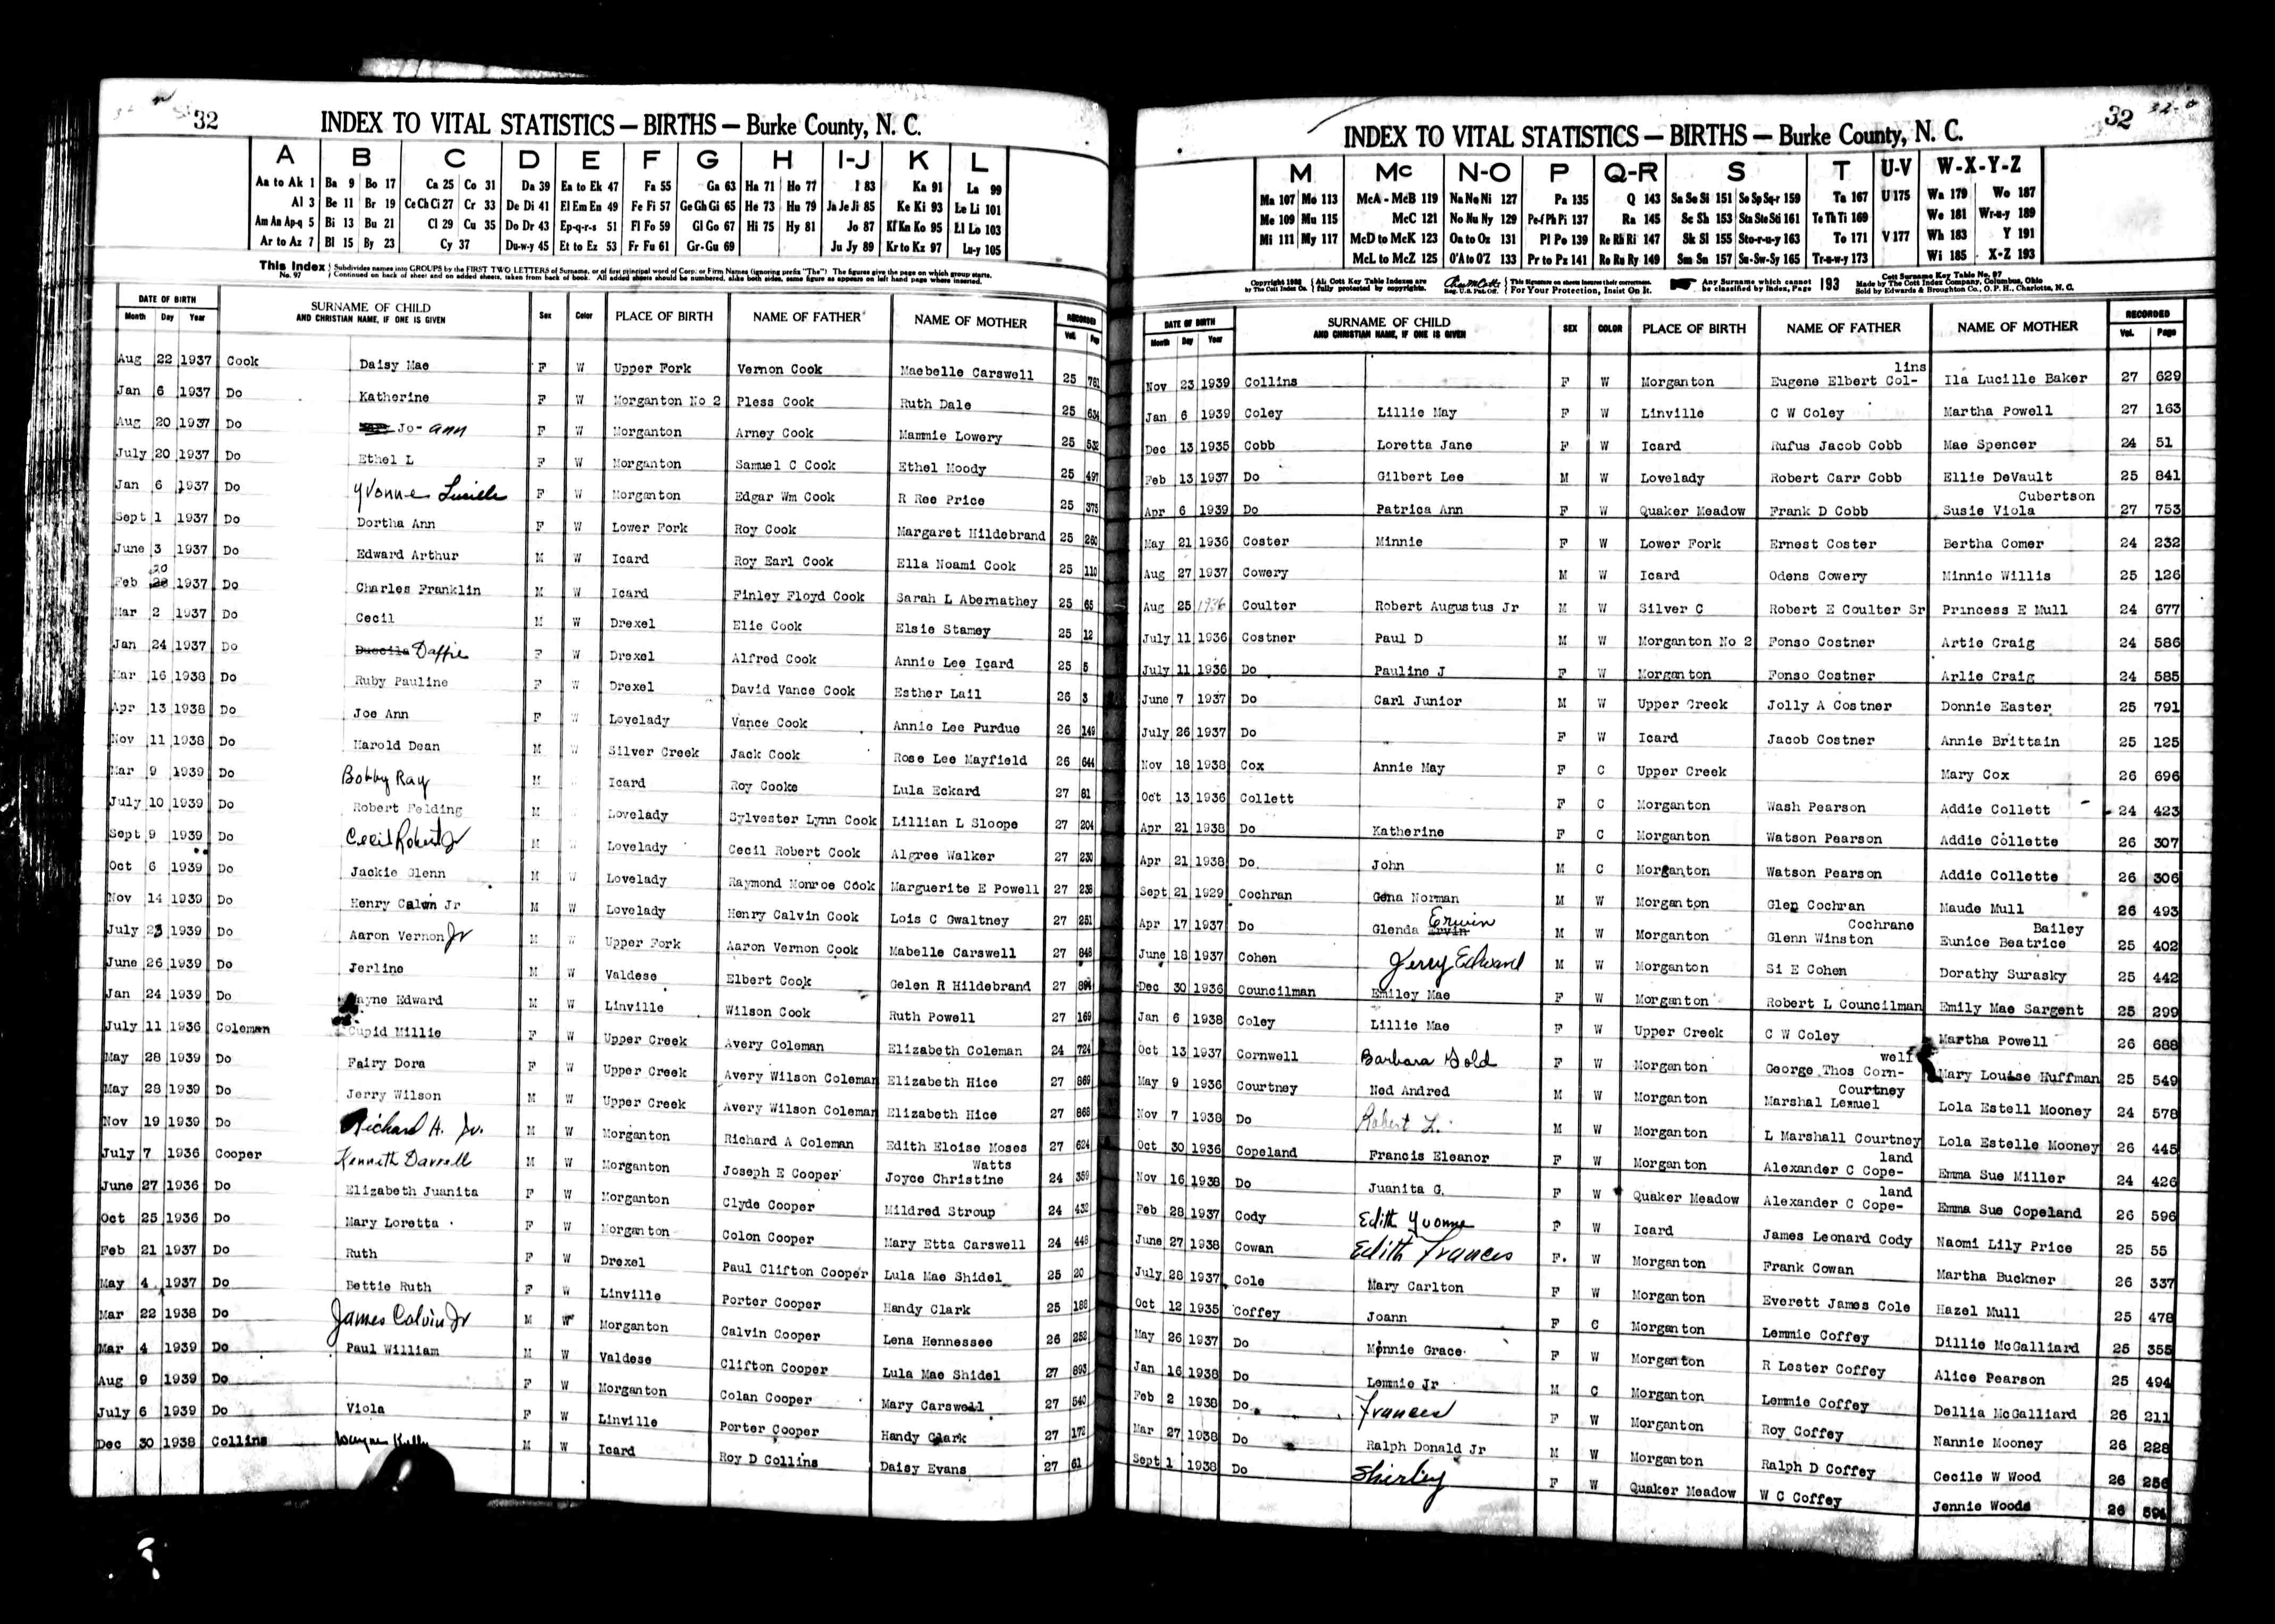 32
INDEX TO VITAL STATISTICS — BIRTHS — Burke County, N. C.
A B C D E F G H I-J K L
Aa to Ak 1 Ba 9 Bo 17 Ca 25 Co 31 Da 39 Ea to Ek 47 Fa 55 Ga 63 Ha 71 Ho 77 I 83 Ka 91 La 99
Al 3 Be 11 Br 19 Ce Ch Ci 27 Cr 33 De Di 41 El Em En 49 Fe Fi 57 Ge Gh Gi 65 He 73 Hu 79 Ja Je Ji 85 Ke Ki 93 Le Li 101
Am An Ap-q 5 Bi 13 Bu 21 Cl 29 Cu 35 Do Dr 43 Ep-q-r-s 51 Fl Fo 59 Gl Go 67 Hi 75 Hy 81 Jo 87 Kf Kn Ko 95 Ll Lo 103
Ar to Az 7 Bl 15 By 23 Cy 37 Du-w-y 45 Et to Ez 53 Fr Fu 61 Gr-Gu 69 Ju Jy 89 Kr to Kz 97 Lu-y 105
This Index No. 97 Subdivides names into GROUPS by the FIRST TWO LETTERS of Surname, or of first principal word of Corp. or Firm Names (ignoring prefix "The") The figures give the page on which group starts.
Continued on back of sheet and on added sheets, taken from back of book. All added sheets should be numbered, alike both sides, same figure as appears on left hand page where inserted.
DATE OF BIRTH SURNAME OF CHILD AND CHRISTIAN NAME, IF ONE IS GIVEN Sex Color PLACE OF BIRTH NAME OF FATHER NAME OF MOTHER RECORDED
Month Day Year Vol. Page
Aug 22 1937 Cook Daisy Mae F W Upper Fork Vernon Cook Maebelle Carswell 25 781
Jan 6 1937 Do Katherine F W Morganton No 2 Pless Cook Ruth Dale 25 634
Aug 20 1937 Do Jo- Ann F W Morganton Arney Cook Mammie Lowery 25 532
July 20 1937 Do Ethel L F W Morganton Samuel C Cook Ethel Moody 25 497
Jan 6 1937 Do Yvonne Lucille F W Morganton Edgar Wm Cook R Ree Price 25 375
Sept 1 1937 Do Dortha Ann F W Lower Fork Roy Cook Margaret Hildebrand 25 260
June 3 1937 Do Edward Arthur M W Icard Roy Earl Cook Ella Noami Cook 25 110
Feb 20 1937 Do Charles Franklin M W Icard Finley Floyd Cook Sarah L Abernathey 25 65
Mar 2 1937 Do Cecil M W Drexel Elie Cook Elsie Stamey 25 12
Jan 24 1937 Do Daffie F W Drexel Alfred Cook Annie Lee Icard 25 5
Mar 16 1938 Do Ruby Pauline F W Drexel David Vance Cook Esther Lail 26 3
Apr 13 1938 Do Joe Ann F W Lovelady Vance Cook Annie Lee Purdue 26 149
Nov 11 1938 Do Harold Dean M W Silver Creek Jack Cook Rose Lee Mayfield 26 644
Mar 9 1939 Do Bobby Ray M Icard Roy Cooke Lula Eckard 27 81
July 10 1939 Do Robert Felding M Lovelady Sylvester Lynn Cook Lillian L Sloope 27 204
Sept 9 1939 Do Cecil Robert Jr M W Lovelady Cecil Robert Cook Algree Walker 27 230
Oct 6 1939 Do Jackie Glenn M W Lovelady Raymond Monroe Cook Marguerite E Powell 27 238
Nov 14 1939 Do Henry Calvin Jr M W Lovelady Henry Calvin Cook Lois C Gwaltney 27 251
July 23 1939 Do Aaron Vernon Jr M W Upper Fork Aaron Vernon Cook Mabelle Carswell 27 848
June 26 1939 Do Jerline M W Valdese Elbert Cook Gelen R Hildebrand 27 894
Jan 24 1939 Do Wayne Edward M W Linville Wilson Cook Ruth Powell 27 169
July 11 1936 Coleman Cupid Millie F W Upper Creek Avery Coleman Elizabeth Coleman 24 724
May 28 1939 Do Fairy Dora F W Upper Creek Avery Wilson Coleman Elizabeth Hice 27 869
May 28 1939 Do Jerry Wilson M W Upper Creek Avery Wilson Coleman Elizabeth Hice 27 868
Nov 19 1939 Do Richard A. Jr. M W Morganton Richard A Coleman Edith Eloise Moses 27 624
July 7 1936 Cooper Kenneth Darrell M W Morganton Joseph E Cooper Joyce Christine Watts 24 359
June 27 1936 Do Elizabeth Juanita F W Morganton Clyde Cooper Mildred Stroup 24 432
Oct 25 1936 Do Mary Loretta F W Morganton Colon Cooper Mary Etta Carswell 24 448
Feb 21 1937 Do Ruth F W Drexel Paul Clifton Cooper Lula Mae Shidel 25 20
May 4 1937 Do Bettie Ruth F W Linville Porter Cooper Handy Clark 25 188
Mar 22 1938 Do James Calvin Jr M W Morganton Calvin Cooper Lena Hennessee 26 252
Mar 4 1939 Do Paul William M W Valdese Clifton Cooper Lula Mae Shidel 27 893
Aug 9 1939 Do F W Morganton Colan Cooper Mary Carswell 27 540
July 6 1939 Do Viola F W Linville Porter Cooper Handy Clark 27 172
Dec 30 1938 Collins Wayne Kelly M W Icard Roy D Collins Daisy Evans 27 61
32
INDEX TO VITAL STATISTICS — BIRTHS — Burke County, N. C.
M Mc N-O P Q-R S T U-V W-X-Y-Z
Ma 107 Mo 113 McA - McB 119 Na Ne Ni 127 Pa 135 Q 143 Sa Se Si 151 So Sp Sq-r 159 Ta 167 U 175 Wa 179 Wo 187
Me 109 Mu 115 McC 121 No Nu Ny 129 Pe-f Ph Pi 137 Ra 145 Sc Sh 153 Sta Ste Sti 161 Te Th Ti 169 We 181 Wr-u-y 189
Mi 111 My 117 McD to McK 123 Oa to Oz 131 Pl Po 139 Re Rh Ri 147 Sk Sl 155 Sto-r-u-y 163 To 171 V 177 Wh 183 Y 191
McL to McZ 125 O'A to O'Z 133 Pr to Pz 141 Ro Ru Ry 149 Sm Sn 157 Su-Sw-Sy 165 Tr-u-w-y 173 Wi 185 X-Z 193
Copyright 1938 by The Cott Index Co. All Cott Key Table Indexes are fully protected by copyrights. Reg. U.S. Pat. Off. This Signature on sheets insures their correctness. For Your Protection, Insist On It. Any Surname which cannot be classified by Index, Page 193 Cott Surname Key Table No. 97 Made by The Cott Index Company, Columbus, Ohio Sold by Edwards & Broughton Co., O. P. H., Charlotte, N. C.
DATE OF BIRTH SURNAME OF CHILD AND CHRISTIAN NAME, IF ONE IS GIVEN SEX COLOR PLACE OF BIRTH NAME OF FATHER NAME OF MOTHER RECORDED
Month Day Year Vol. Page
Nov 23 1939 Collins F W Morganton Eugene Elbert Col-lins Ila Lucille Baker 27 629
Jan 6 1939 Coley Lillie May F W Linville C W Coley Martha Powell 27 163
Dec 13 1935 Cobb Loretta Jane F W Icard Rufus Jacob Cobb Mae Spencer 24 51
Feb 13 1937 Do Gilbert Lee M W Lovelady Robert Carr Cobb Ellie DeVault 25 841
Apr 6 1939 Do Patrica Ann F W Quaker Meadow Frank D Cobb Susie Viola Cubertson 27 753
May 21 1936 Coster Minnie F W Lower Fork Ernest Coster Bertha Comer 24 232
Aug 27 1937 Cowery M W Icard Odens Cowery Minnie Willis 25 126
Aug 25 1936 Coulter Robert Augustus Jr M W Silver C Robert E Coulter Sr Princess E Mull 24 677
July 11 1936 Costner Paul D M W Morganton No 2 Fonso Costner Artie Craig 24 586
July 11 1936 Do Pauline J F W Morganton Fonso Costner Arlie Craig 24 585
June 7 1937 Do Carl Junior M W Upper Creek Jolly A Costner Donnie Easter 25 791
July 26 1937 Do F W Icard Jacob Costner Annie Brittain 25 125
Nov 18 1938 Cox Annie May F C Upper Creek Mary Cox 26 696
Oct 13 1936 Collett F C Morganton Wash Pearson Addie Collett 24 423
Apr 21 1938 Do Katherine F C Morganton Watson Pearson Addie Collette 26 307
Apr 21 1938 Do John M C Morganton Watson Pearson Addie Collette 26 306
Sept 21 1929 Cochran Gena Norman M W Morganton Glen Cochran Maude Mull 26 493
Apr 17 1937 Do Glenda Ervin Erwin M W Morganton Glenn Winston Cochrane Eunice Beatrice Bailey 25 402
June 18 1937 Cohen Jerry Edward M W Morganton Si E Cohen Dorathy Surasky 25 442
Dec 30 1936 Councilman Emiley Mae F W Morganton Robert L Councilman Emily Mae Sargent 25 299
Jan 6 1938 Coley Lillie Mae F W Upper Creek C W Coley Martha Powell 26 688
Oct 13 1937 Cornwell Barbara Gold F W Morganton George Thos Corn-well Mary Louise Huffman 25 549
May 9 1936 Courtney Ned Andred M W Morganton Marshal Lemuel Courtney Lola Estell Mooney 24 578
Nov 7 1938 Do Robert L. M W Morganton L Marshall Courtney Lola Estelle Mooney 26 445
Oct 30 1936 Copeland Francis Eleanor F W Morganton Alexander C Cope-land Emma Sue Miller 24 426
Nov 16 1938 Do Juanita G. F W Quaker Meadow Alexander C Cope-land Emma Sue Copeland 26 596
Feb 28 1937 Cody Edith Yvonne F W Icard James Leonard Cody Naomi Lily Price 25 55
June 27 1938 Cowan Edith Frances F. W Morganton Frank Cowan Martha Buckner 26 337
July 28 1937 Cole Mary Carlton F W Morganton Everett James Cole Hazel Mull 25 478
Oct 12 1935 Coffey Joann F C Morganton Lemmie Coffey Dillie McGalliard 25 355
May 26 1937 Do Monnie Grace F W Morganton R Lester Coffey Alice Pearson 25 494
Jan 16 1938 Do Lemmie Jr M C Morganton Lemmie Coffey Dellia McGalliard 26 211
Feb 2 1938 Do Frances F W Morganton Roy Coffey Nannie Mooney 26 228
Mar 27 1938 Do Ralph Donald Jr M W Morganton Ralph D Coffey Cecile W Wood 26 256
Sept 1 1938 Do Shirley F W Quaker Meadow W C Coffey Jennie Woods 26 594